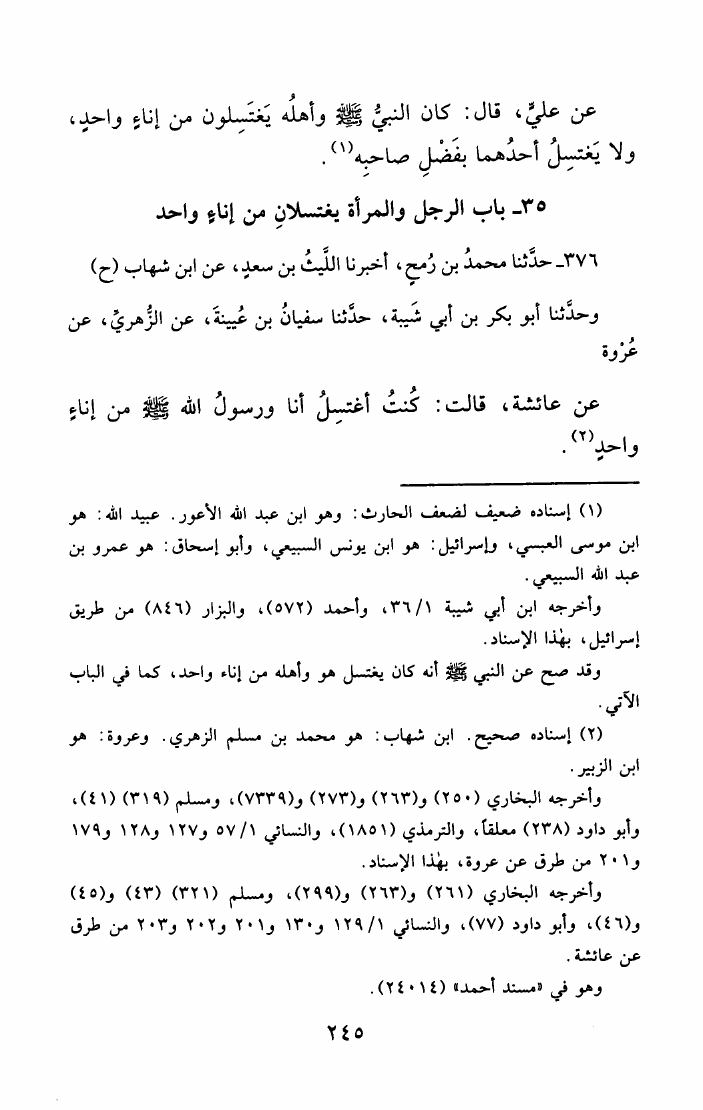 عن عليٍّ، قال: كان النبيُّ ﷺ وأهلُه يَغتَسِلون من إناءٍ واحدٍ،
ولا يَغتسِلُ أحدُهما بفَضْلِ صاحبِه(١).
٣٥ـ باب الرجل والمرأة يغتسلانِ من إناءٍ واحد
٣٧٦ـ حدَّثنا محمدُ بن رُمحٍ، أخبرنا اللَّيثُ بن سعدٍ، عن ابن شهاب (ح)
وحدَّثنا أبو بكر بن أبي شَيبة، حدَّثنا سفيانُ بن عُيينةَ، عن الزُّهريِّ، عن
عُرْوة
عن عائشة، قالت: كُنتُ أغتسِلُ أنا ورسولُ الله ﷺ من إناءٍ
واحدٍ(٢).
(١) إسناده ضعيف لضعف الحارث: وهو ابن عبد الله الأعور. عبيد الله: هو
ابن موسى العبسي، وإسرائيل: هو ابن يونس السبيعي، وأبو إسحاق: هو عمرو بن
عبد الله السبيعي.
وأخرجه ابن أبي شيبة ٣٦/١، وأحمد (٥٧٢)، والبزار (٨٤٦) من طريق
إسرائيل، بهٰذا الإسناد.
وقد صح عن النبي ﷺ أنه كان يغتسل هو وأهله من إناء واحد، كما في الباب
الآتي.
(٢) إسناده صحيح. ابن شهاب: هو محمد بن مسلم الزهري. وعروة: هو
ابن الزبير.
وأخرجه البخاري (٢٥٠) و(٢٦٣) و(٢٧٣) و(٧٣٣٩)، ومسلم (٣١٩) (٤١)،
وأبو داود (٢٣٨) معلقاً، والترمذي (١٨٥١)، والنسائي ٥٧/١ و١٢٧ و١٢٨ و١٧٩
و٢٠١ من طرق عن عروة، بهٰذا الإسناد.
وأخرجه البخاري (٢٦١) و(٢٦٣) و(٢٩٩)، ومسلم (٣٢١) (٤٣) و(٤٥)
و(٤٦)، وأبو داود (٧٧)، والنسائي ١٢٩/١ و١٣٠ و٢٠١ و٢٠٢ و٢٠٣ من طرق
عن عائشة.
وهو في «مسند أحمد» (٢٤٠١٤).
٢٤٥